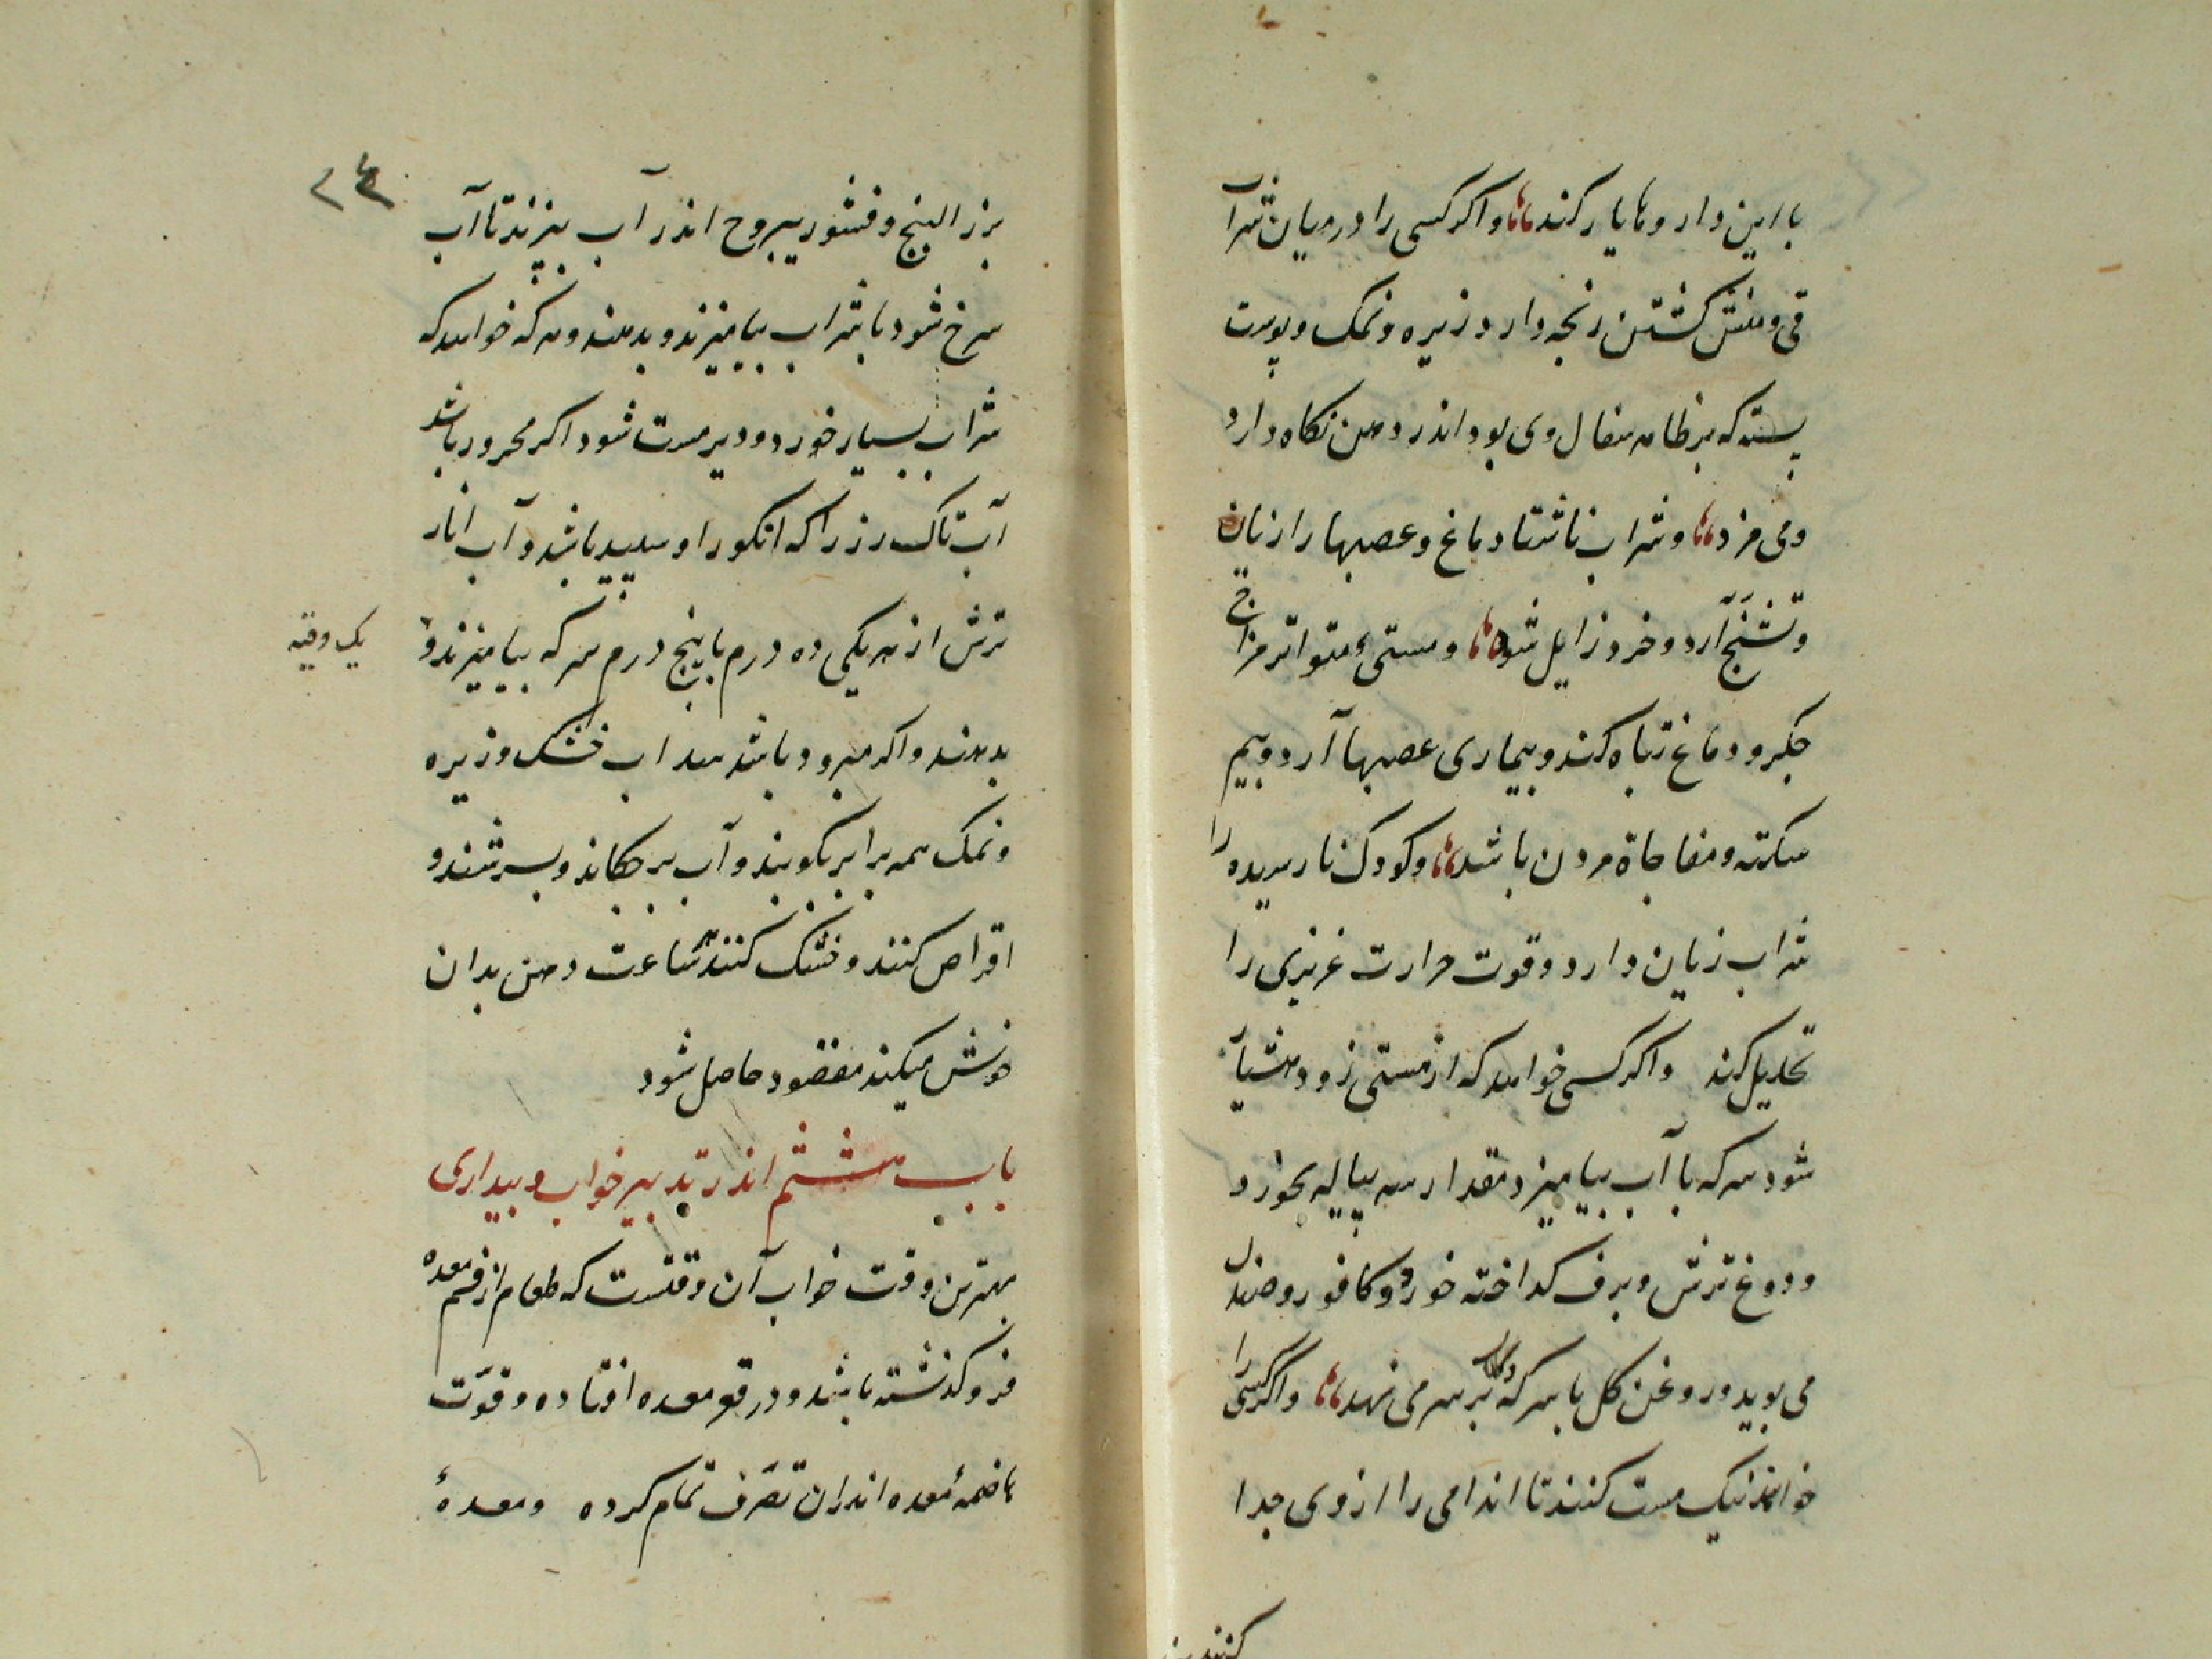 با این داروها یار کند و اکر کسی را در میان شراب
قی و منش کشتن رنجه دارد زیره و نمک و پوست
پسته که بر ظاهر سفال وی بود اندر دهن نکاه دارد
و می مزد و شراب ناشتا دماغ و عصبها را زیان
و تشنّج آرد و خرد زایل شود و مستیء متواتر مزاج
جکر و دماغ تباه کند و بیماری عصبها آرد و بیم
سکته و مفاجاة مردن باشد و کودک نارسیده را
شراب زیان دارد و قوت حرارت غریزی را
تحلیل کند واکر کسی خواهد که از مستی زود هشیار
شود سرکه با آب بیامیزد مقدار سه پیاله بخورد
و دوغ ترش و برف کداخته خورد و کافور و صندل
می بوید و روغن کل با سرکه بر سر می نهد و اکر کسی را
خواهند نیک مست کنند تا اندامی را از وی جدا
کنند
۲۴
بزر البنج و قشور یبروح اندر آب بپزند تا آب
سرخ شود با شراب بیامیزند و بدهند و هر که خواهد که
شراب بسیار خورد و دیر مست شود اکر محرور باشد
آب تاک رز را که انکور او سپید باشد و آب انار
ترش از هر یکی ده درم با پنج درم سرکه بیامیزند و
یک وقیه
بدهند و اکر مبرود باشد سداب خشک و زیره
و نمک همه برابر بکوبند و آب بر چکانند و بسرشند و
اقراص کنند و خشک کنند هر ساعت دهن بدان
خوش میکند مقصود حاصل شود
باب هشتم اندر تدبیر خواب و بیداری
بهترین وقت خواب آن وقتست که طعام از فم معده
فرو کذشته باشد و در قعر معده افتاده و قوّت
هاضمهٔ معده اندران تصرّف تمام کرده و معدهٔ